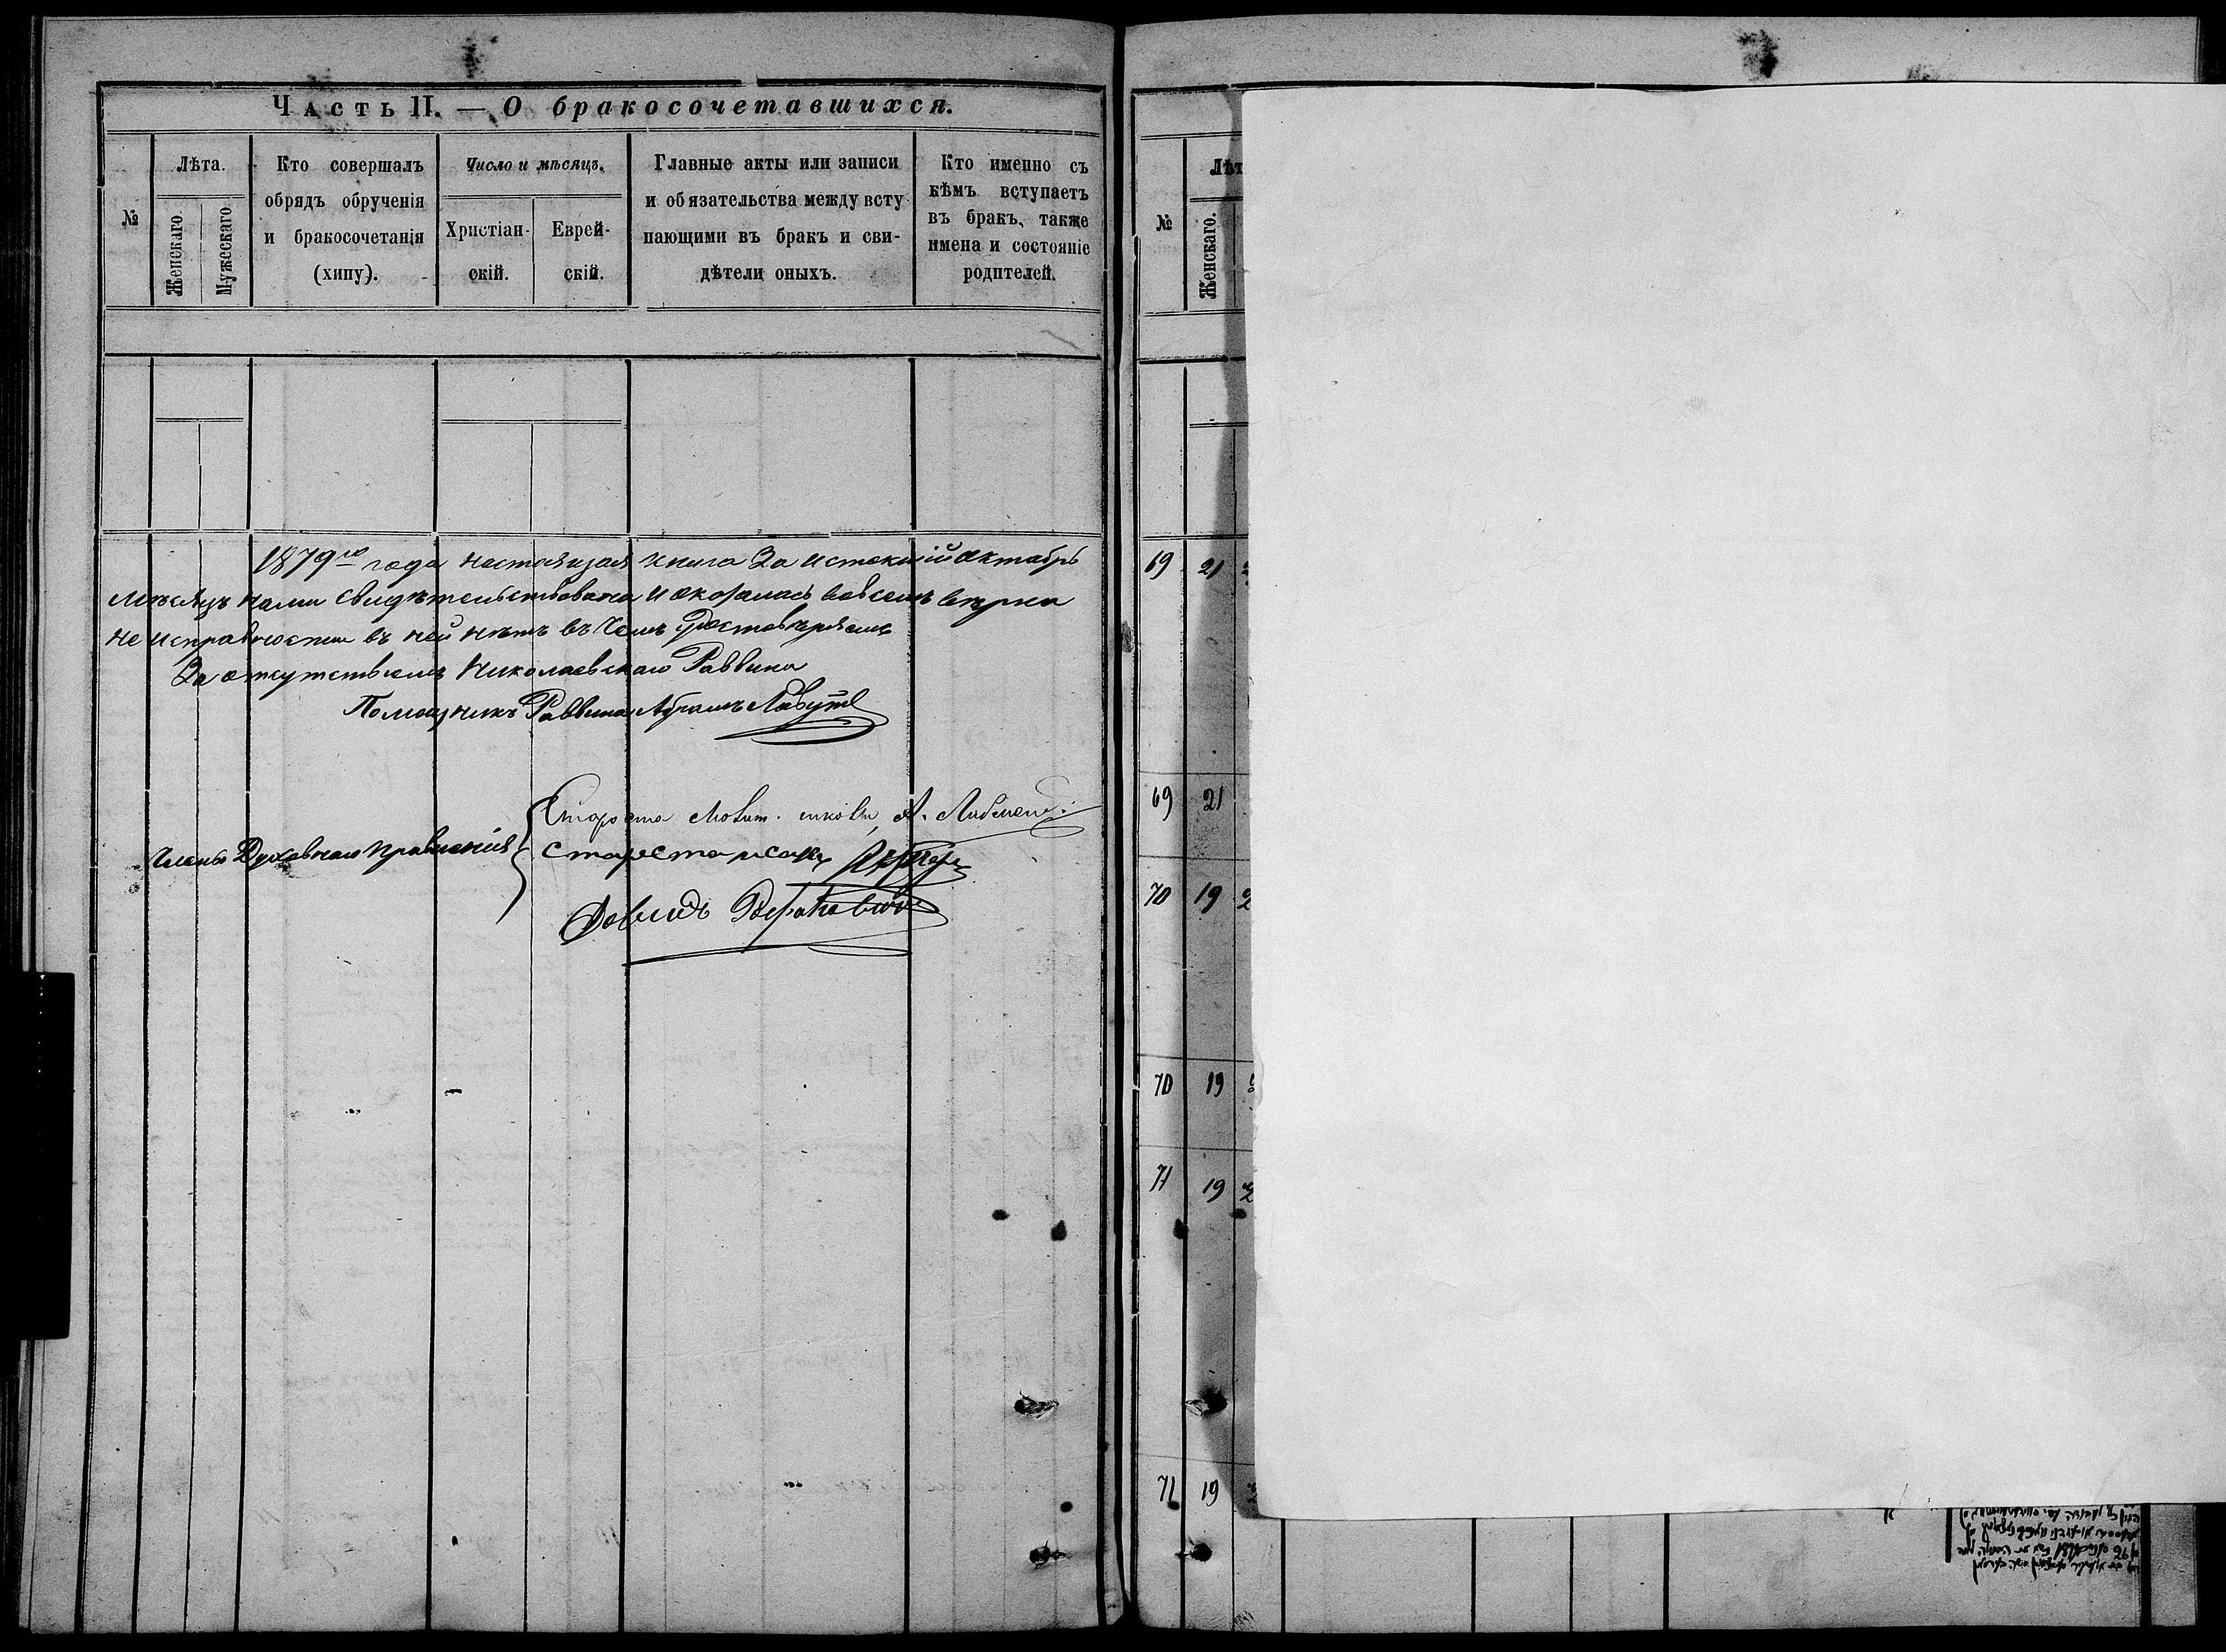 Часть II. — О бракосочетавшихся.
№
Лѣта.
Женскаго.
Мужескаго
Кто совершалъ
обрядъ обрученія
и бракосочетанія
(хипу).
Число и мѣсяцъ.
Христіан-
скій.
Еврей-
скій.
Главные акты или записи
и обязательства между всту
пающими въ бракъ и сви-
дѣтели оныхъ.
Кто именно съ
кѣмъ вступаетъ
въ бракъ, также
имена и состояніе
родителей.
1879го года настоящая книга За истекшій октябрь
мѣсяцъ нами свидѣтельствована и оказалась вовсемъ вѣрна
неисправности въ ней нѣтъ въ чемъ удостовѣряемъ
За отсутствіемъ Николаевскаго Раввина
Помощникъ Раввина Абрамъ Лавутъ
Члены Духовнаго Правленія
Староста Молит. школы, А.
Староста
Довидъ
№
Лѣт
Женскаго.
69 21
69 21
70 19 2
70 19
71 19 2
71 19